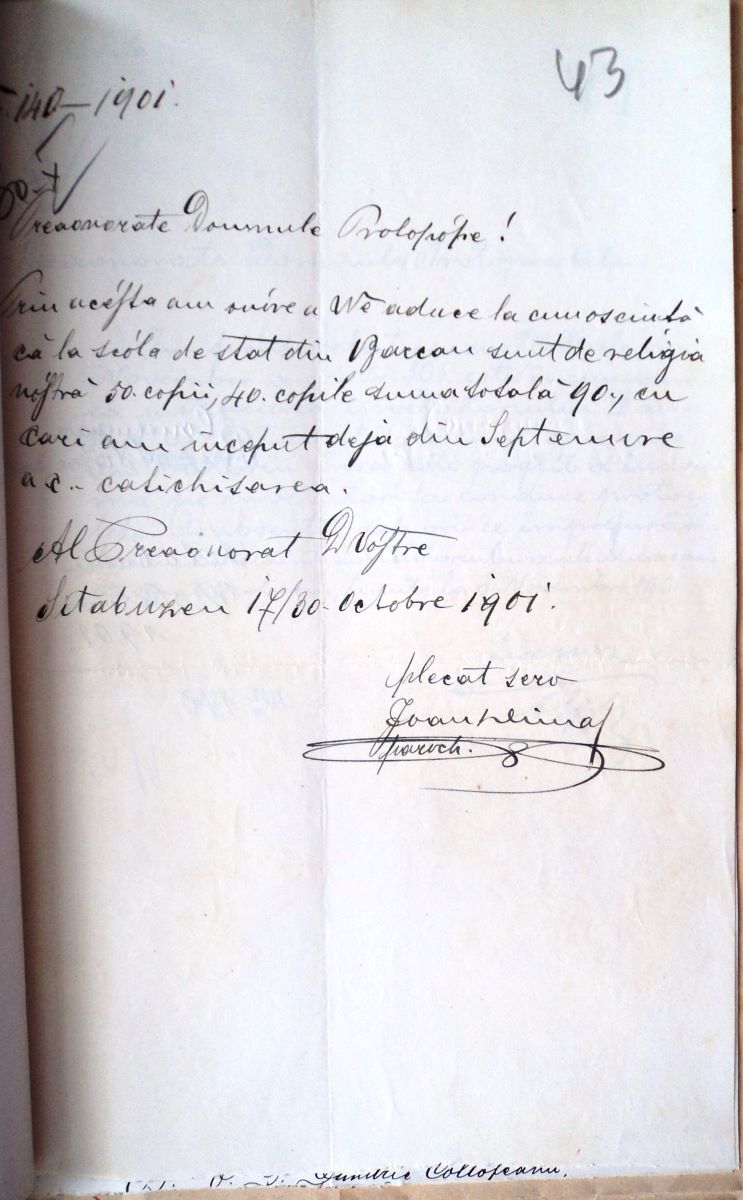 43
140–1901.
Preaonorate Domnule Protopópe!
Prin acésta am onóre a Ve aduce la cunoscintă
că la scóla de stat din Barcan sunt de religia
nóstră 50. copii, 40. copile suma totală 90., cu
cari am inceput deja din Septemvre
a. c. catichisarea.
Al Preaonorat D Vóstre
Sitabuzeu 17/30. Octobre 1901.
plecat serv
Ioan
paroch.
Dumitrie